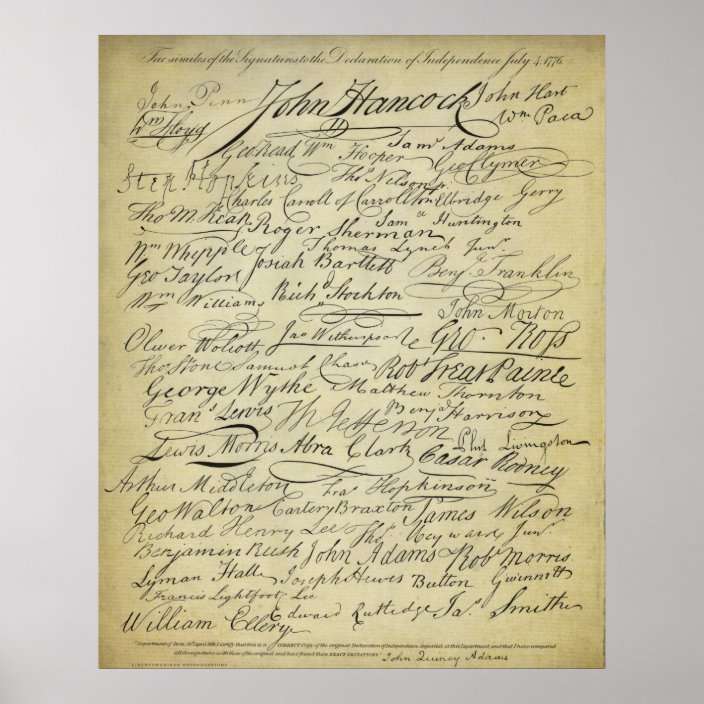 Facsimiles of the Signatures to the Declaration of Independence July 4, 1776
John Penn John Hancock John Hart
Wm Floyd Wm Paca
Saml Adams
Geo Read Wm Hooper Geo Clymer
Step. Hopkins Thos Nelson jr.
Charles Carroll of Carrollton Elbridge Gerry
Tho M. Kean Saml Huntington
Roger Sherman
Wm Whipple Thomas Lynch Junr.
Josiah Bartlett Benj. Franklin
Geo Taylor
Wm Williams Richd Stockton
John Morton
Oliver Wolcott Jno Witherspoon Geo. Ross
Thos Stone Samuel Chase Robt Treat Paine
George Wythe Matthew Thornton
Frans Lewis Th Jefferson Benja Harrison
Lewis Morris Abra Clark Phil. Livingston
Cæsar Rodney
Arthur Middleton Fras Hopkinson
Geo Walton Carter Braxton James Wilson
Richard Henry Lee Thos. Heyward Junr.
Benjamin Rush John Adams Robt Morris.
Lyman Hall Joseph Hewes Button Gwinnett
Francis Lightfoot Lee
William Ellery Edward Rutledge Jas. Smith
Department of State, 19th April 1819, I certify that this is a CORRECT Copy of the original Declaration of Independence, deposited at this Department, and that I have compared
all the signatures with those of the original and have found them EXACT IMITATIONS. John Quincy Adams